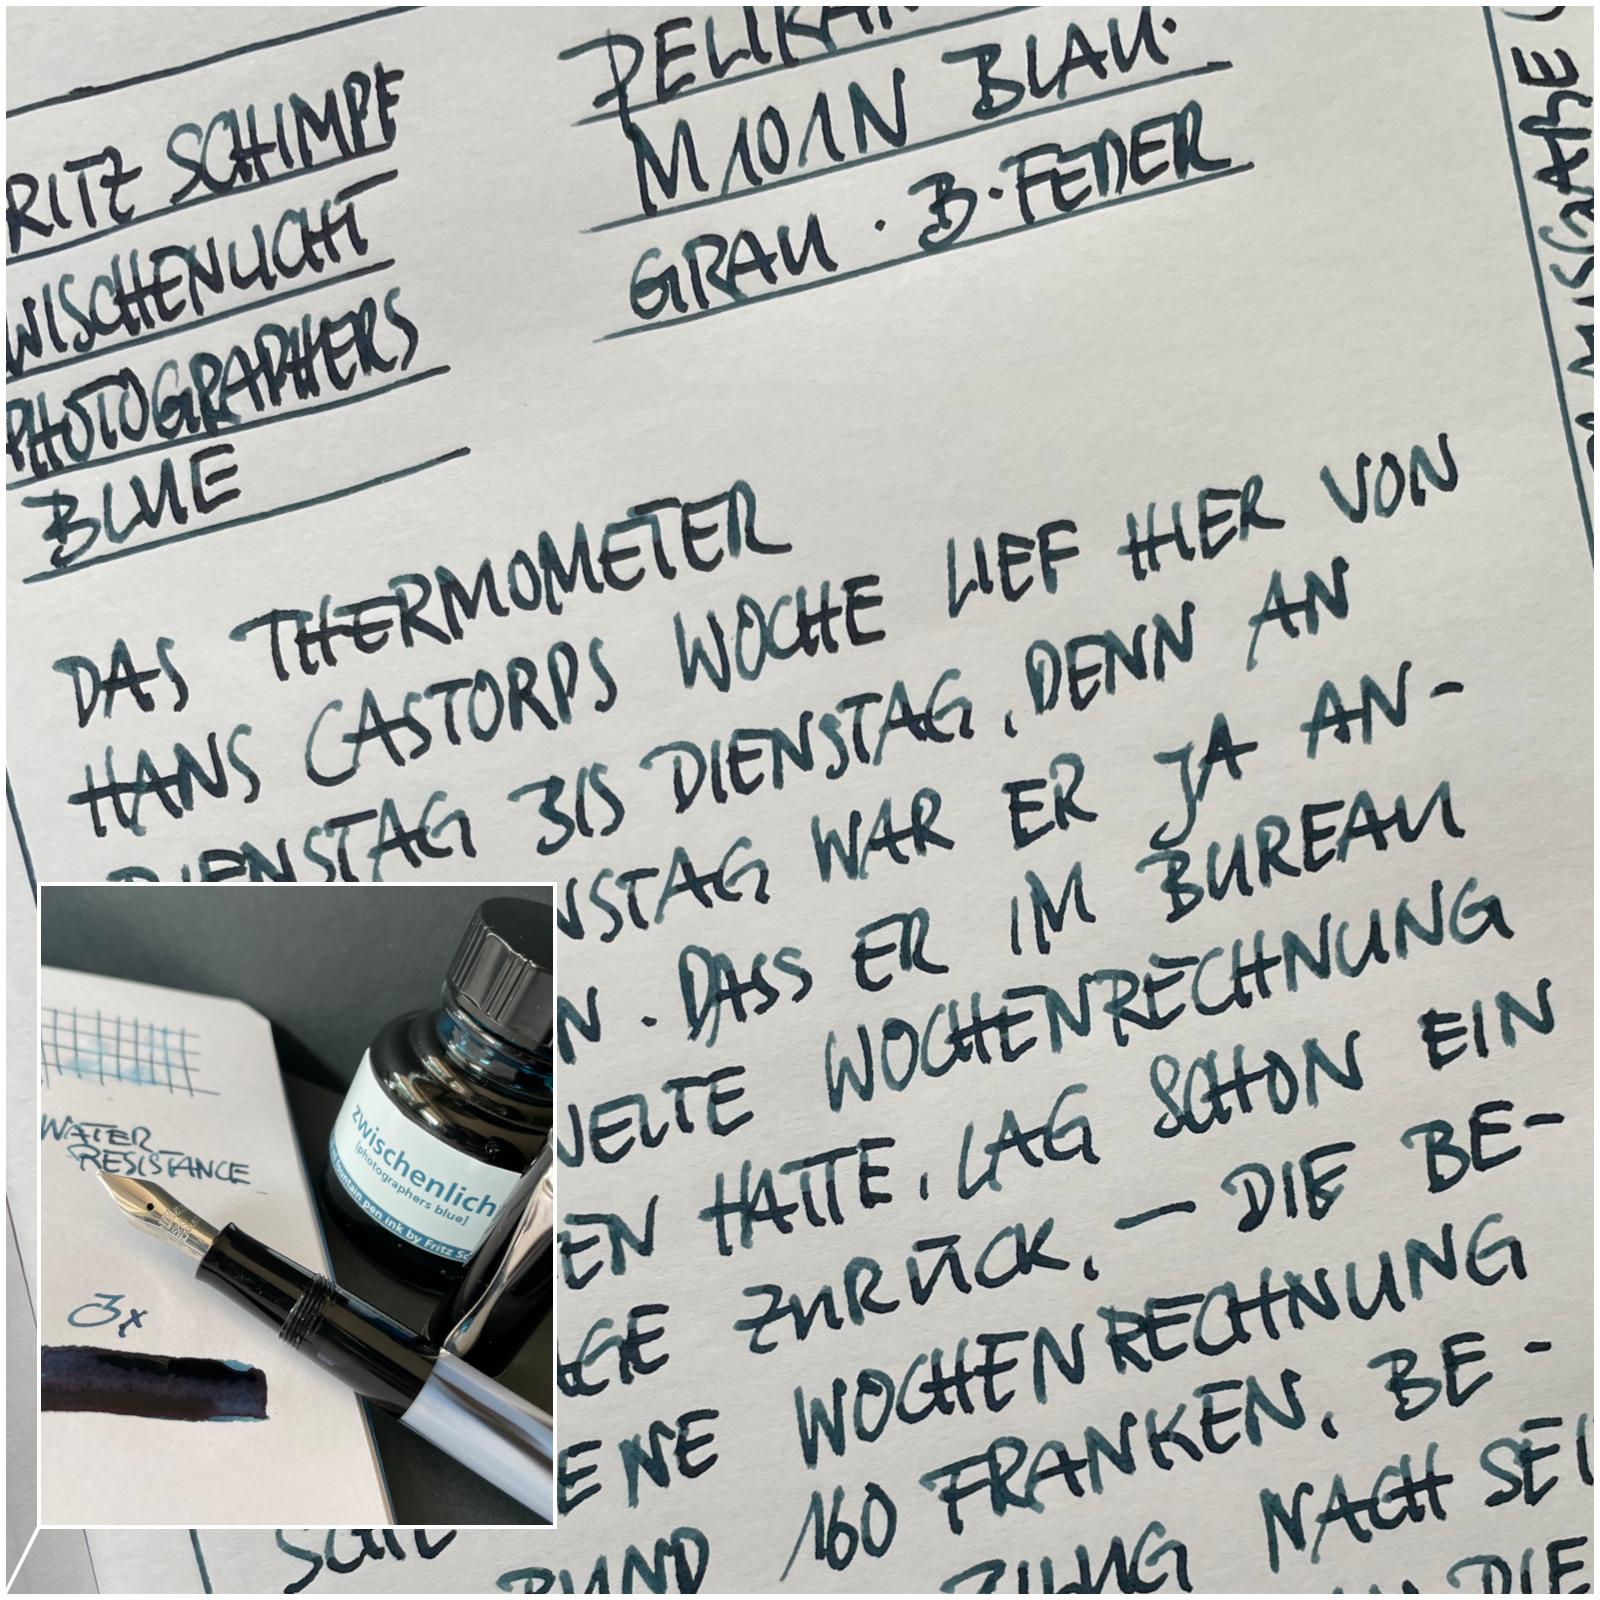 RITZ SCHIMPF
WISCHENLICHT
PHOTOGRAPHERS
BLUE
PELIKAN
M101N BLAU·
GRAU · B·FEDER
DAS THERMOMETER
HANS CASTORPS WOCHE LIEF HIER VON
DIENSTAG BIS DIENSTAG, DENN AN
NSTAG WAR ER JA AN-
N. DASS ER IM BUREAU
WOCHENRECHNUNG
EN HATTE, LAG SCHON EIN
GE ZURÜCK, — DIE BE-
ENE WOCHENRECHNUNG
160 FRANKEN, BE-
RUND NACH SEI
DIE
WATER
RESISTANCE
3x
Zwischenlich
[photographers blue]
fountain pen ink by Fritz Sc